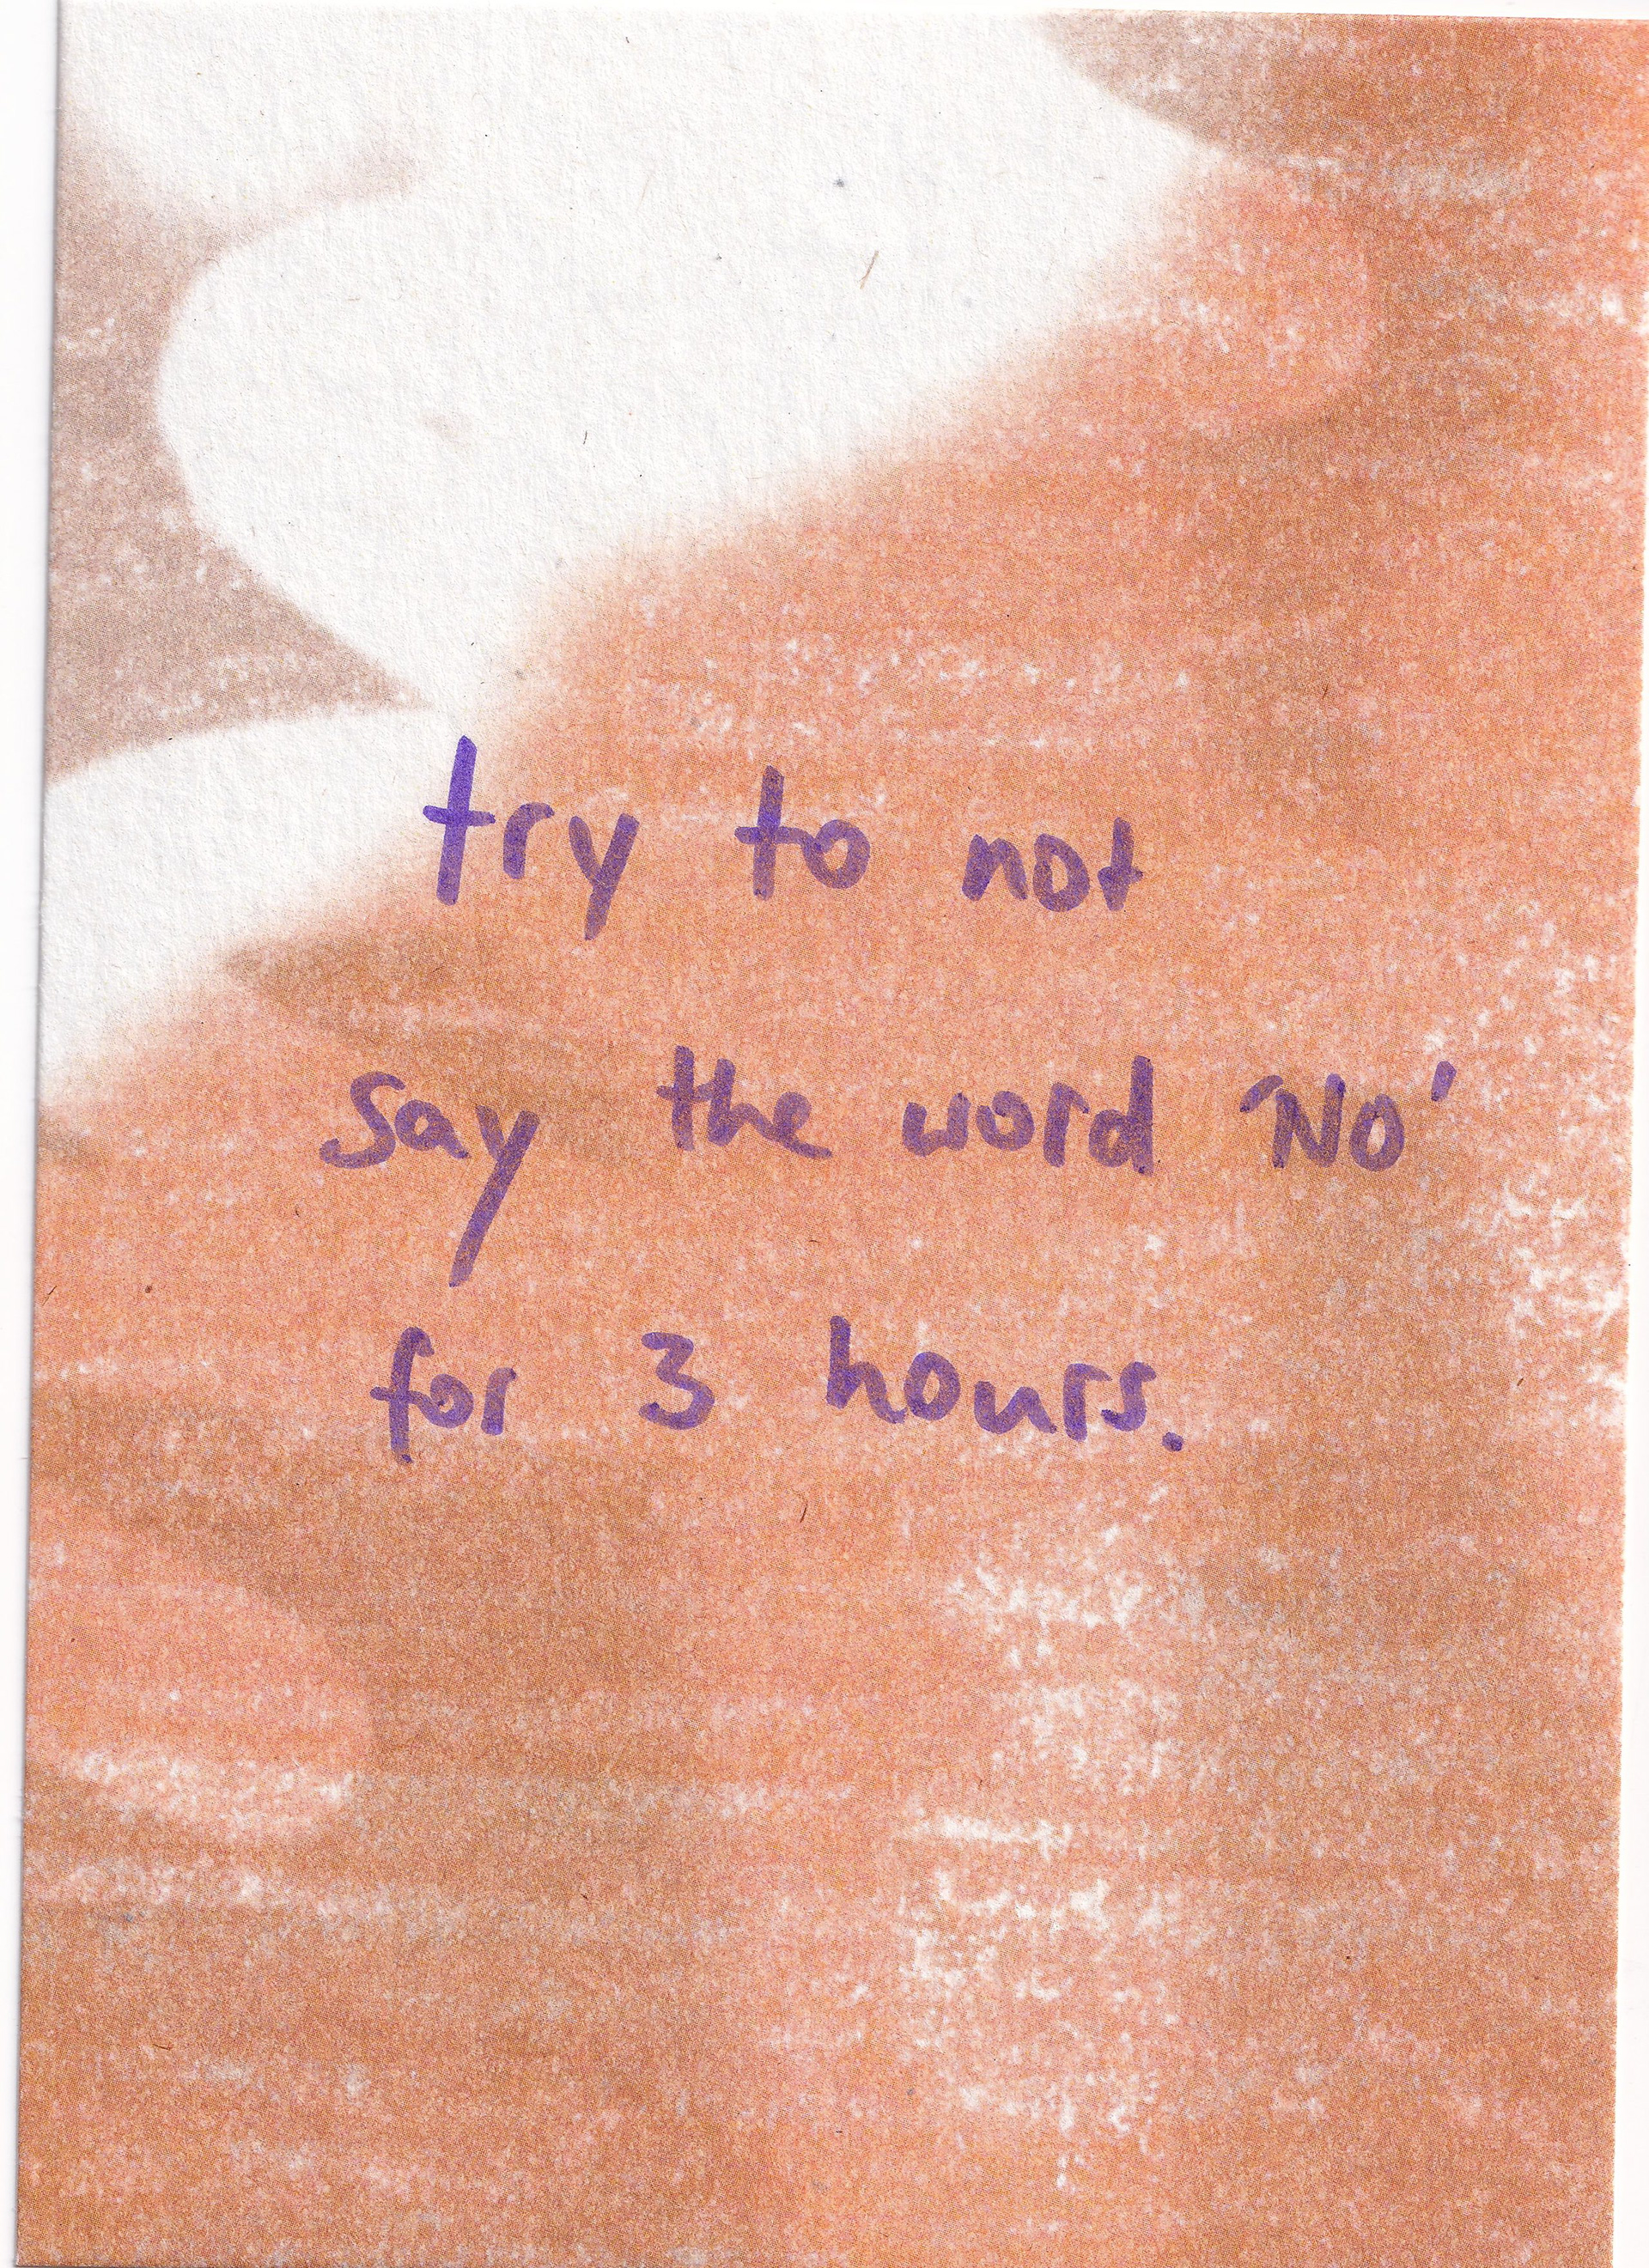 try to not
say the word 'NO'
for 3 hours.